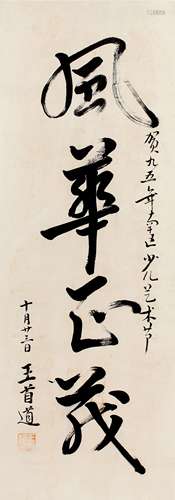 風華正茂
贺九五年李區少儿艺术节
十月廿三日
王首道